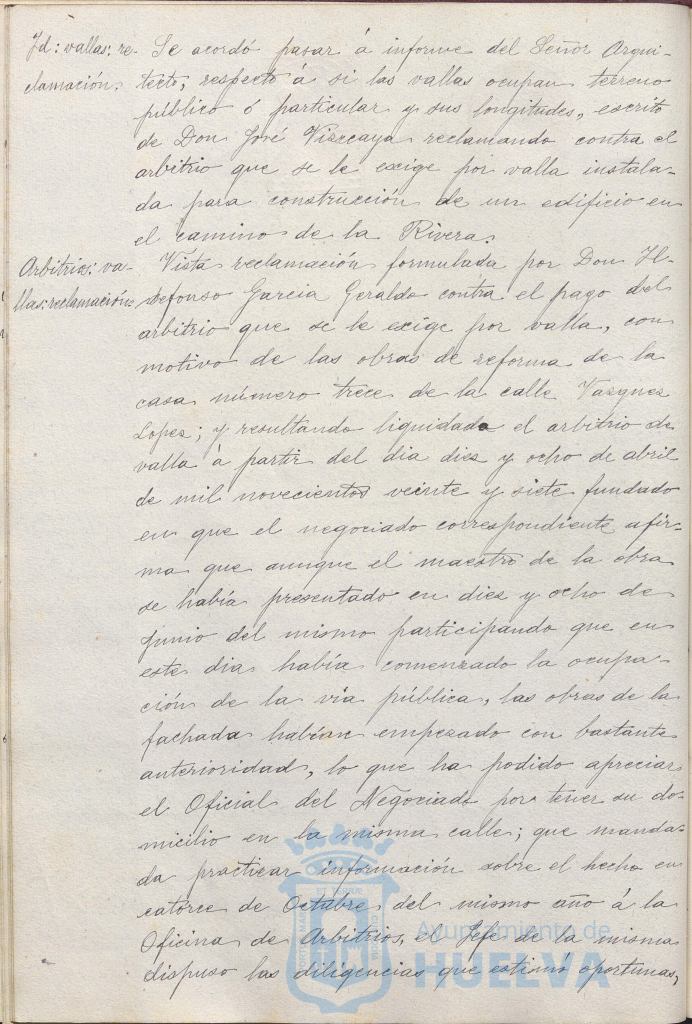 Id: vallas: re-
clamación.
Se acordó pasar á informe del Señor Arqui-
tecto, respecto á si las vallas ocupan terreno
público ó particular y sus longitudes, escrito
de Don José Vizcaya reclamando contra el
arbitrio que se le exige por valla instala-
da para construcción de un edificio en
el camino de la Rivera.
Arbitrios: va-
llas: reclamación:
Vista reclamación formulada por Don Il-
defonso Garcia Geraldo contra el pago del
arbitrio que se le exige por valla, con
motivo de las obras de reforma de la
casa número trece de la calle Vasques
Lopes; y resultando liquidado el arbitrio de
valla á partir del dia dies y ocho de abril
de mil novecientos veinte y siete fundado
en que el negociado correspondiente afir-
ma que aunque el maestro de la obra
se había presentado en dies y ocho de
junio del mismo participando que en
este dia había comenzado la ocupa-
ción de la vía pública, las obras de la
fachada habían empesado con bastante
anterioridad, lo que ha podido apreciar
el Oficial del Negociado por tener su do-
micilio en la misma calle; que manda-
da practicar información sobre el hecho en
catorce de Octubre del mismo año á la
Oficina de Arbitrios, el Jefe de la misma
dispuso las diligencias que estimó oportunas,
Ayuntamiento de
HUELVA